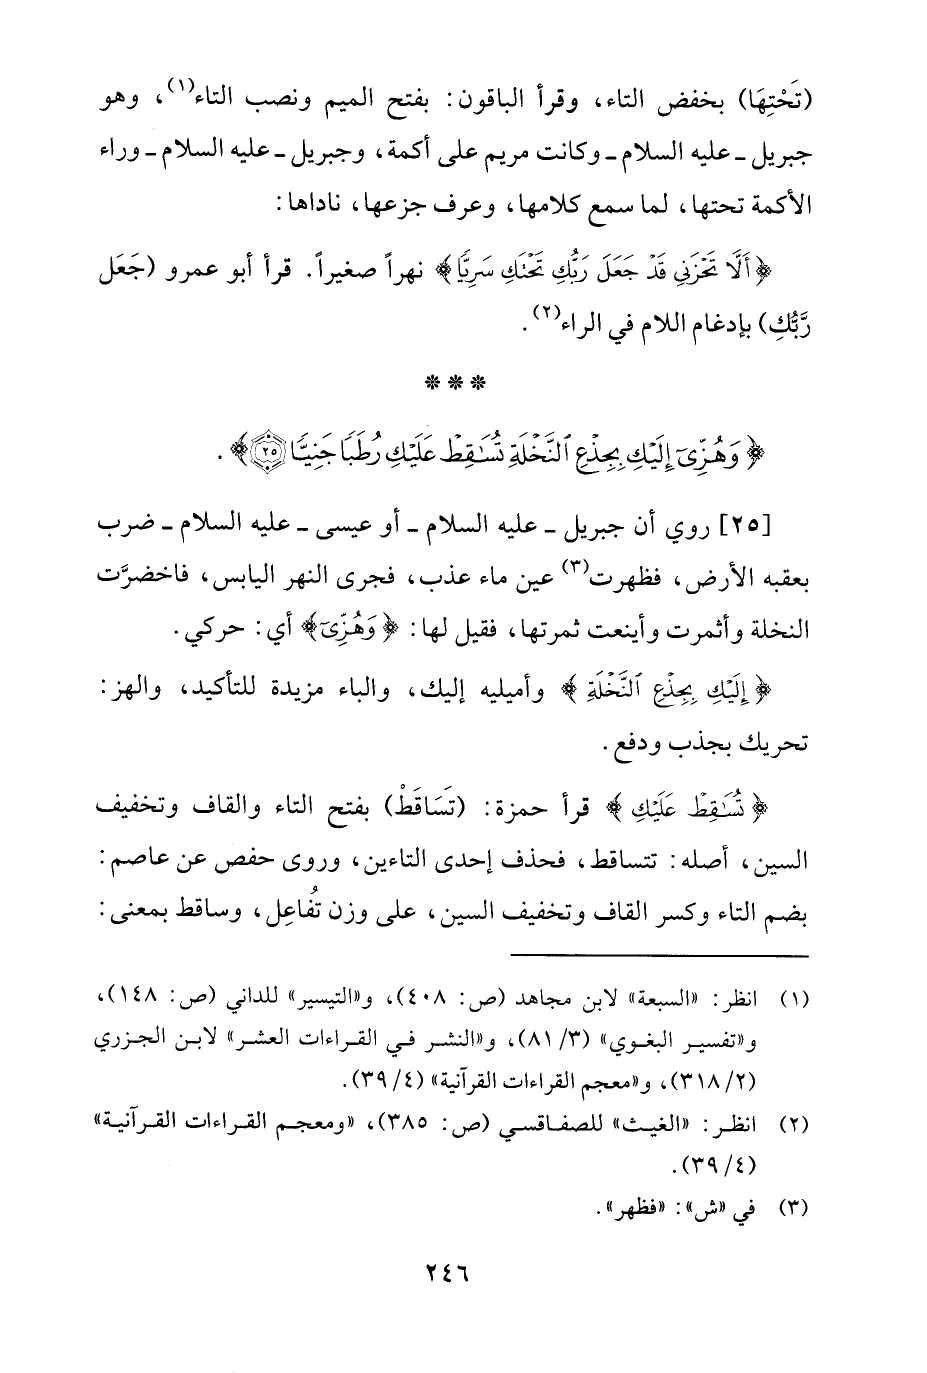 (تَحْتِهَا) بخفض التاء، وقرأ الباقون: بفتح الميم ونصب التاء(١)، وهو
جبريل ـ عليه السلام ـ وكانت مريم على أكمة، وجبريل ـ عليه السلام ـ وراء
الأكمة تحتها، لما سمع كلامها، وعرف جزعها، ناداها:
﴿أَلَّا تَحْزَنِي قَدْ جَعَلَ رَبُّكِ تَحْتَكِ سَرِيًّا﴾ نهراً صغيراً. قرأ أبو عمرو (جَعَل
رَّبُّكِ) بإدغام اللام في الراء(٢).
* * *
﴿وَهُزِّىٓ إِلَيْكِ بِجِذْعِ ٱلنَّخْلَةِ تُسَٰقِطْ عَلَيْكِ رُطَبًا جَنِيًّا ٢٥﴾.
[٢٥] روي أن جبريل ـ عليه السلام ـ أو عيسى ـ عليه السلام ـ ضرب
بعقبه الأرض، فظهرت(٣) عين ماء عذب، فجرى النهر اليابس، فاخضرَّت
النخلة وأثمرت وأينعت ثمرتها، فقيل لها: ﴿وَهُزِّىٓ﴾ أي: حركي.
﴿إِلَيْكِ بِجِذْعِ ٱلنَّخْلَةِ﴾ وأميليه إليك، والباء مزيدة للتأكيد، والهز:
تحريك بجذب ودفع.
﴿تُسَٰقِطْ عَلَيْكِ﴾ قرأ حمزة: (تَسَاقَطْ) بفتح التاء والقاف وتخفيف
السين، أصله: تتساقط، فحذف إحدى التاءين، وروى حفص عن عاصم:
بضم التاء وكسر القاف وتخفيف السين، على وزن تُفاعِل، وساقط بمعنى:
(١) انظر: «السبعة» لابن مجاهد (ص: ٤٠٨)، و«التيسير» للداني (ص: ١٤٨)،
و«تفسير البغوي» (٣/ ٨١)، و«النشر في القراءات العشر» لابن الجزري
(٢/ ٣١٨)، و«معجم القراءات القرآنية» (٤/ ٣٩).
(٢) انظر: «الغيث» للصفاقسي (ص: ٣٨٥)، «ومعجم القراءات القرآنية»
(٤/ ٣٩).
(٣) في «ش»: «فظهر».
٢٤٦